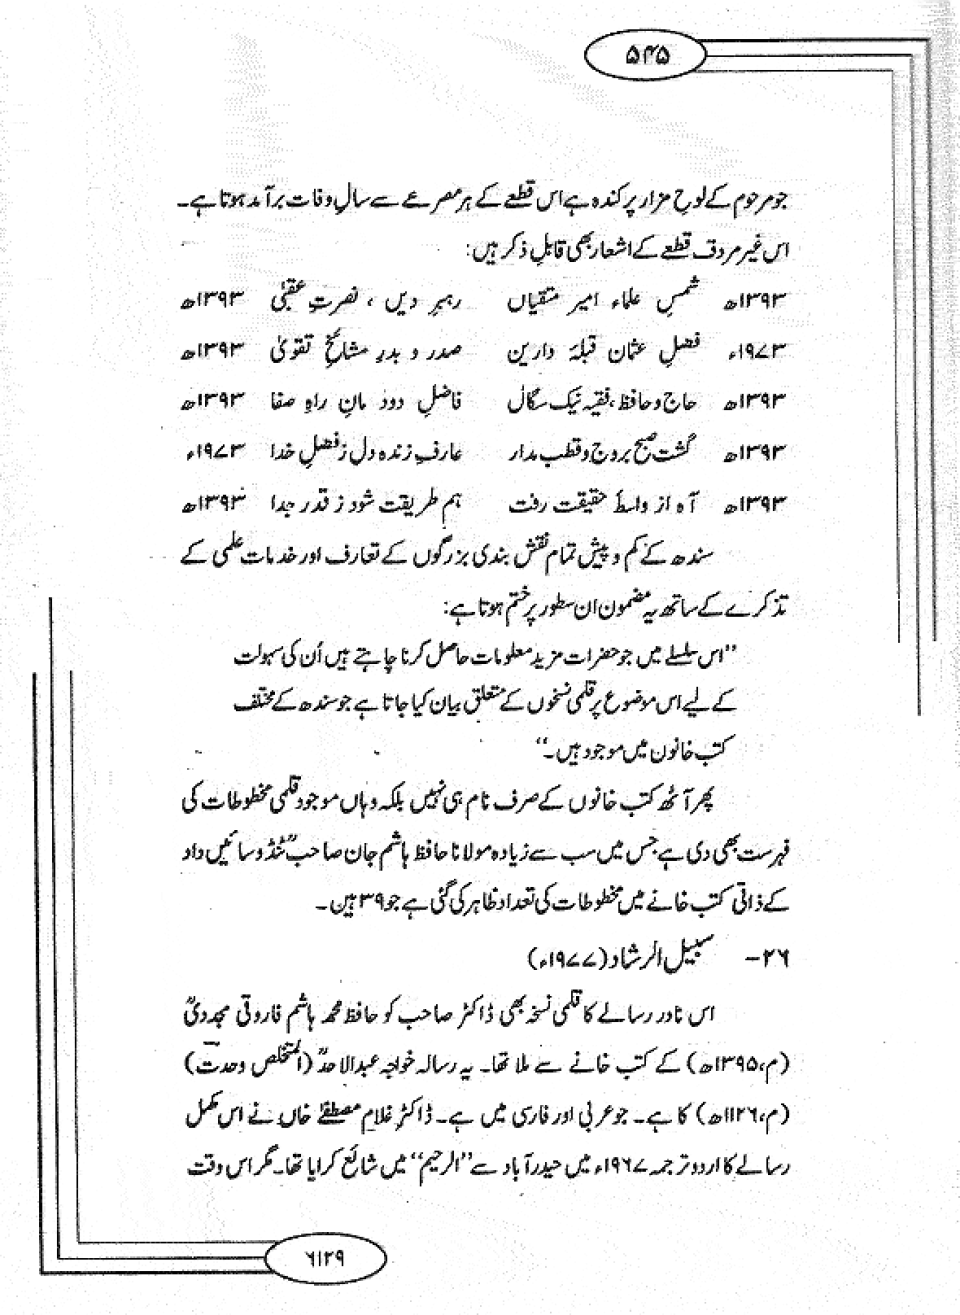 ۵۴۵
جو مرحوم کے لوحِ مزار پر کندہ ہے اس قطعے کے ہر مصرعے سے سالِ وفات برآمد ہوتا ہے۔
اس غیر مردف قطعے کے اشعار بھی قابلِ ذکر ہیں:
۱۳۹۳ھ شمسِ علماء امیر متقیاں رہبرِ دیں ، نصرتِ عقبیٰ ۱۳۹۳ھ
۱۹۷۳ء فضلِ عثمان قبلۂ دارین صدر و بدرِ مشائخِ تقویٰ ۱۳۹۳ھ
۱۳۹۳ھ حاج و حافظ، فقیہ نیک سگال فاضلِ دودمانِ راہِ صفا ۱۳۹۳ھ
۱۳۹۳ھ گشت صبح بروج و قطب مدار عارفِ زندہ دل ز فضلِ خدا ۱۹۷۳ء
۱۳۹۳ھ آہ از واسطۂ حقیقت رفت ہم طریقت شود ز قدر جدا ۱۳۹۳ھ
سندھ کے کم و پیش تمام نقش بندی بزرگوں کے تعارف اور خدمات علمی کے
تذکرے کے ساتھ یہ مضمون ان سطور پر ختم ہوتا ہے:
”اس سلسلے میں جو حضرات مزید معلومات حاصل کرنا چاہتے ہیں اُن کی سہولت
کے لیے اس موضوع پر قلمی نسخوں کے متعلق بیان کیا جاتا ہے جو سندھ کے مختلف
کتب خانوں میں موجود ہیں۔“
پھر آٹھ کتب خانوں کے صرف نام ہی نہیں بلکہ وہاں موجود قلمی مخطوطات کی
فہرست بھی دی ہے جس میں سب سے زیادہ مولانا حافظ ہاشم جان صاحبؒ ٹنڈو سائیں داد
کے ذاتی کتب خانے میں مخطوطات کی تعداد ظاہر کی گئی ہے جو ۳۹ ہیں۔
۲۶- سبیل الرشاد (۱۹۷۷ء)
اس نادر رسالے کا قلمی نسخہ بھی ڈاکٹر صاحب کو حافظ محمد ہاشم فاروقی مجددیؒ
(م،۱۳۹۵ھ) کے کتب خانے سے ملا تھا۔ یہ رسالہ خواجہ عبدالاحدؒ (المتخلص وحدت)
(م،۱۱۲۶ھ) کا ہے۔ جو عربی اور فارسی میں ہے۔ ڈاکٹر غلام مصطفےٰ خاں نے اس مکمل
رسالے کا اردو ترجمہ ۱۹۶۷ء میں حیدرآباد سے ”الرحیم“ میں شائع کرایا تھا۔ مگر اس وقت
۶۱۲۹